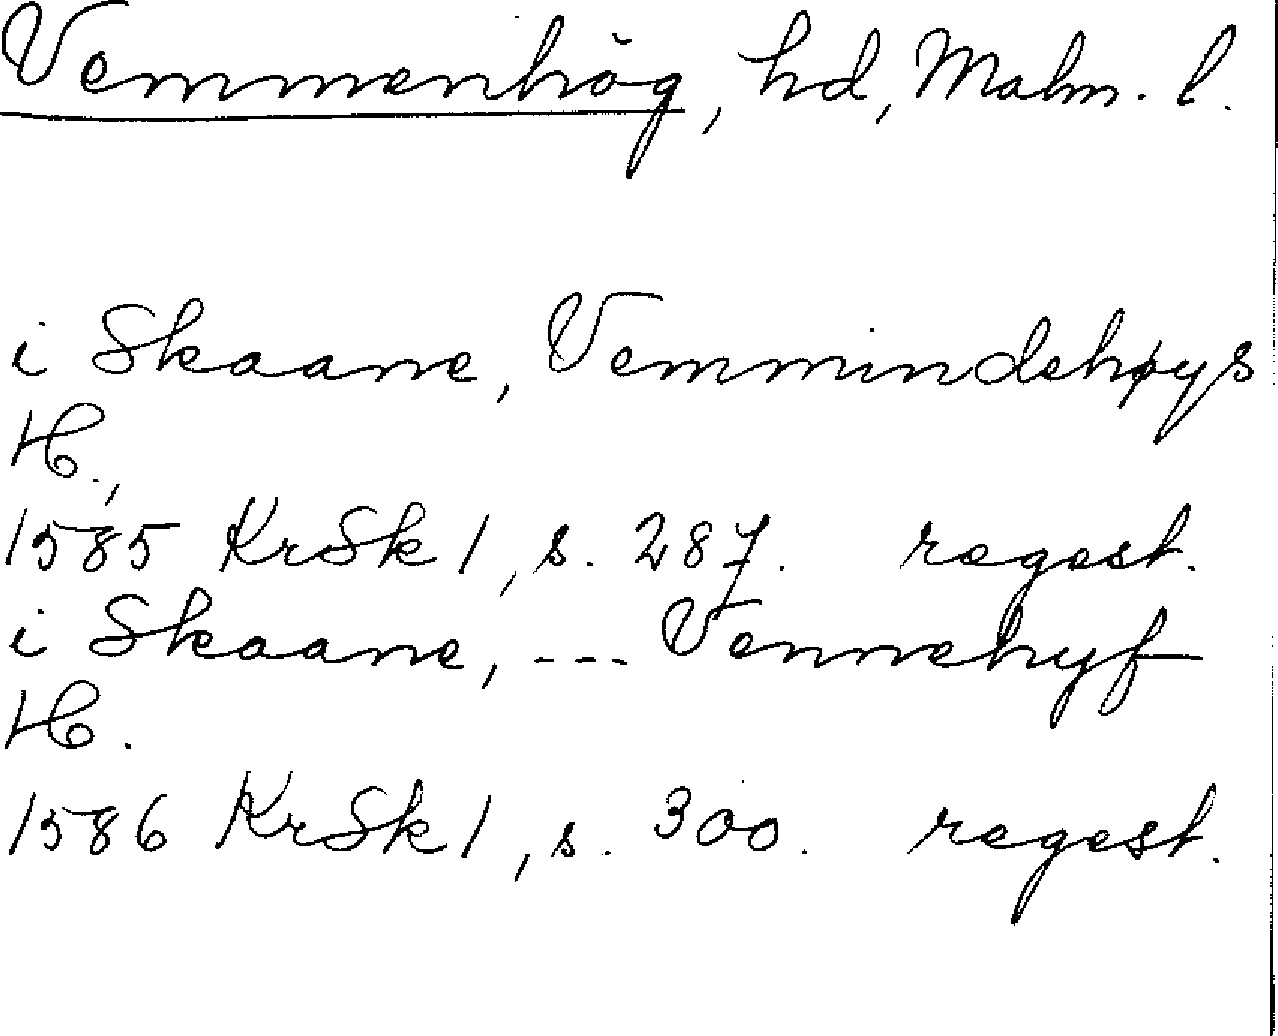 Vemmenhög, hd, Malm. l.
i Skaane, Vemmindehøys
H.,
1585 KrSk 1, s. 287. regest.
i Skaane, --- Vennehyf
H.
1586 KrSk 1, s. 300. regest.